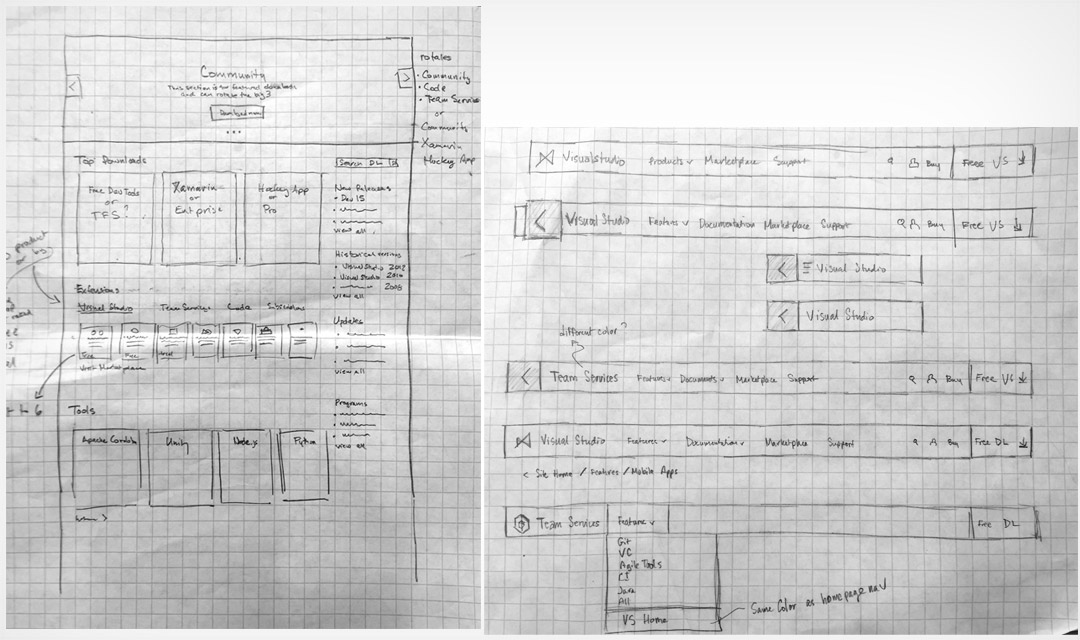 Community
This section is for featured downloads
and can rotate the big 3
Download now
rotates
• Community
• Code
• Team Services
or
Community
Xamarin
Hockey App
Top Downloads
Search DL
Free Dev Tools
or
TFS?
Xamarin
or
Entprise
HockeyApp
or
Pro
New Releases
• Dev 15
view all
Historical versions
• Visual Studio 2012
• Visual Studio 2010
2008
view all
product
or by
Extensions
Visual Studio
Team Services
Code
Subscriptions
Free
Free
Visit Marketplace
Updates
view all
Tools
Apache Cordova
Unity
Node.js
Python
Programs
view all
Visualstudio Products Marketplace Support Buy Free VS
Visual Studio Features Documentation Marketplace Support Buy Free VS
Visual Studio
Visual Studio
different color?
Team Services Features Documents Marketplace Support Buy Free VS
Visual Studio Features Documentation Marketplace Support Buy Free DL
< Site Home / Features / Mobile Apps
Team Services Feature Free DL
Git
VC
Agile Tools
CI
Java
All
VS Home
Same Color as homepage nav